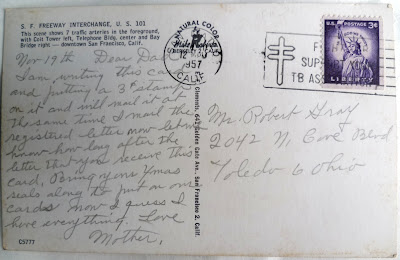 S. F. FREEWAY INTERCHANGE, U. S. 101
This scene shows 7 traffic arteries in the foreground,
with Coit Tower left, Telephone Bldg. center and Bay
Bridge right — downtown San Francisco, Calif.
Nov 19th Dear Dad
I am writing this card
and putting a 3¢ stamp
on it and will mail it at
the same time I mail the
registered letter now let me
know how long after the
letter that you receive this
card, Bring your Xmas
seals along to put on our
cards now I guess I
have everything. Love
Mother,
C5777
NATURAL COLOR
1957
CALIF.
TB AS
U.S. POSTAGE 3¢
LIBERTY
Mr. Robert Gray
2042 N. Cove Blvd
Toledo 6 Ohio
Golden Gate Ave., San Francisco 2, Calif.